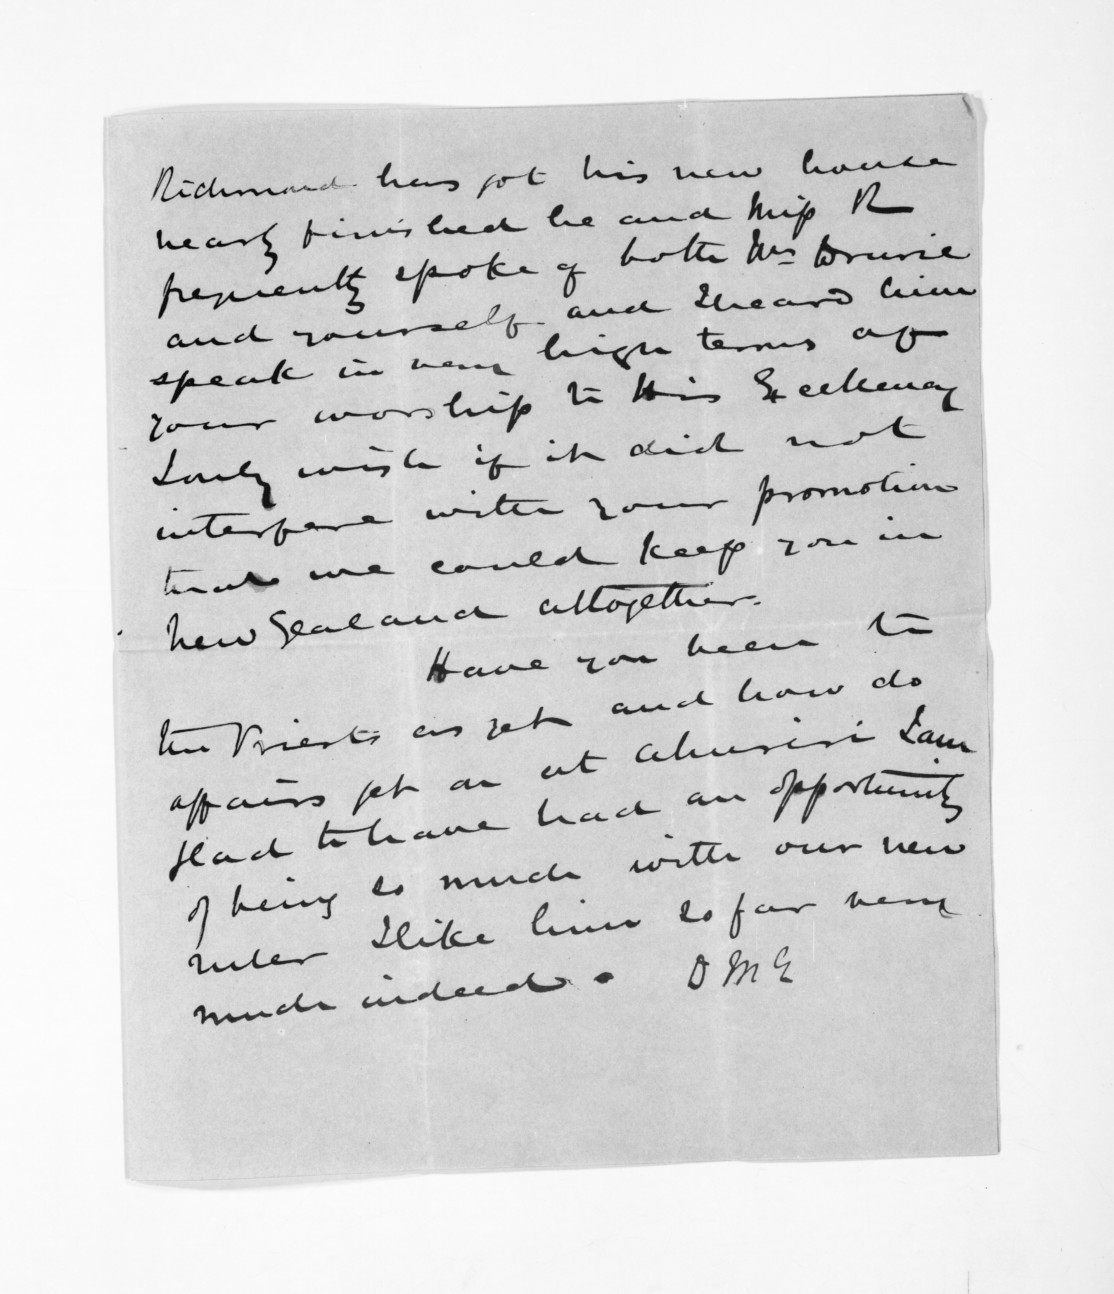 Richmond has got his new house
nearly finished he and Miss R
frequently spoke of both Mrs Drurie
and yourself and I heard him
speak in very high terms of
your worship to His Excellency
I only wish if it did not
interfere with your promotion
that we could keep you in
New Zealand altogether.
Have you been to
the Priests as yet and how do
affairs get on at Ahuriri I am
glad to have had an opportunity
of being so much with our new
ruler I like him so far very
much indeed.  D McL